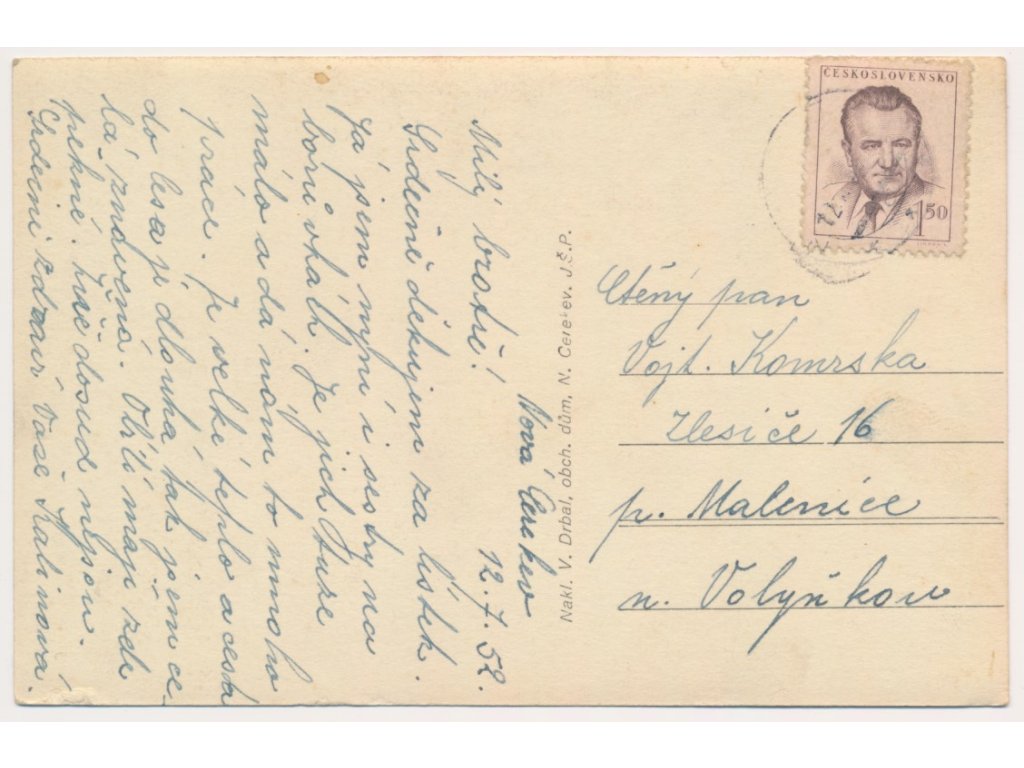 Nová Cerekev
12.7.52.
Milý bratře!
Srdečně děkujem za lístek.
Já jsem nyní i sestry na
boru vkálh. Je jich
málo a dá nám to mnoho
práce. Je velké teplo a cesta
do lesa je dlouhá tak jsem ce-
lá znavená. Obilí mají zde
pěkné. Žně dosud nejsou.
Srdeční zdraví Vaše Kalinová.
Nakl. V. Drbal, obch. dům, N. Cerekev. J.Č.P.
ČESKOSLOVENSKO
1.50
Ctěný pan
Vojt. Komrska
Zlesiče 16
p. Malenice
n. Volyňkou